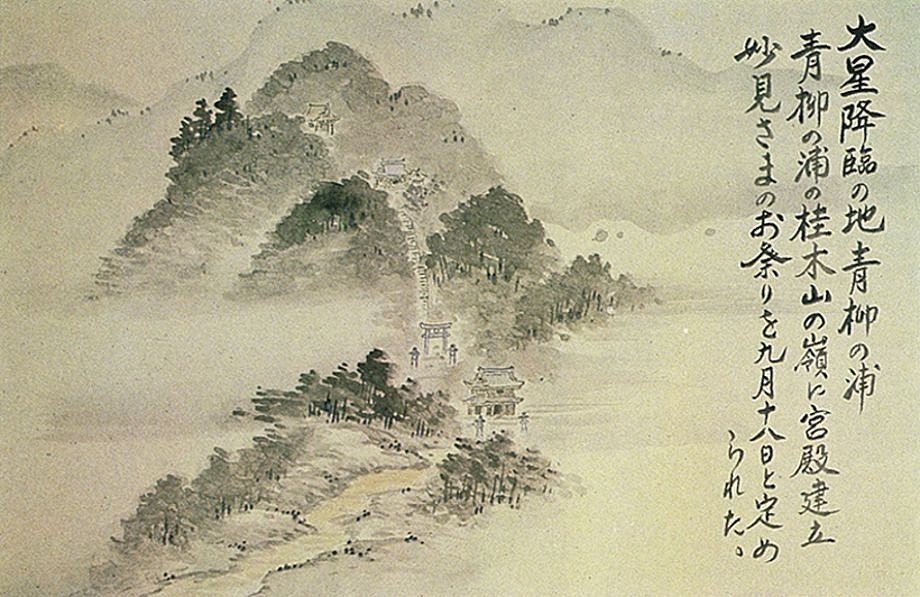 大星降臨の地青柳の浦
青柳の浦の桂木山の嶺に宮殿建立
妙見さまのお祭りを九月十八日と定め
られた。